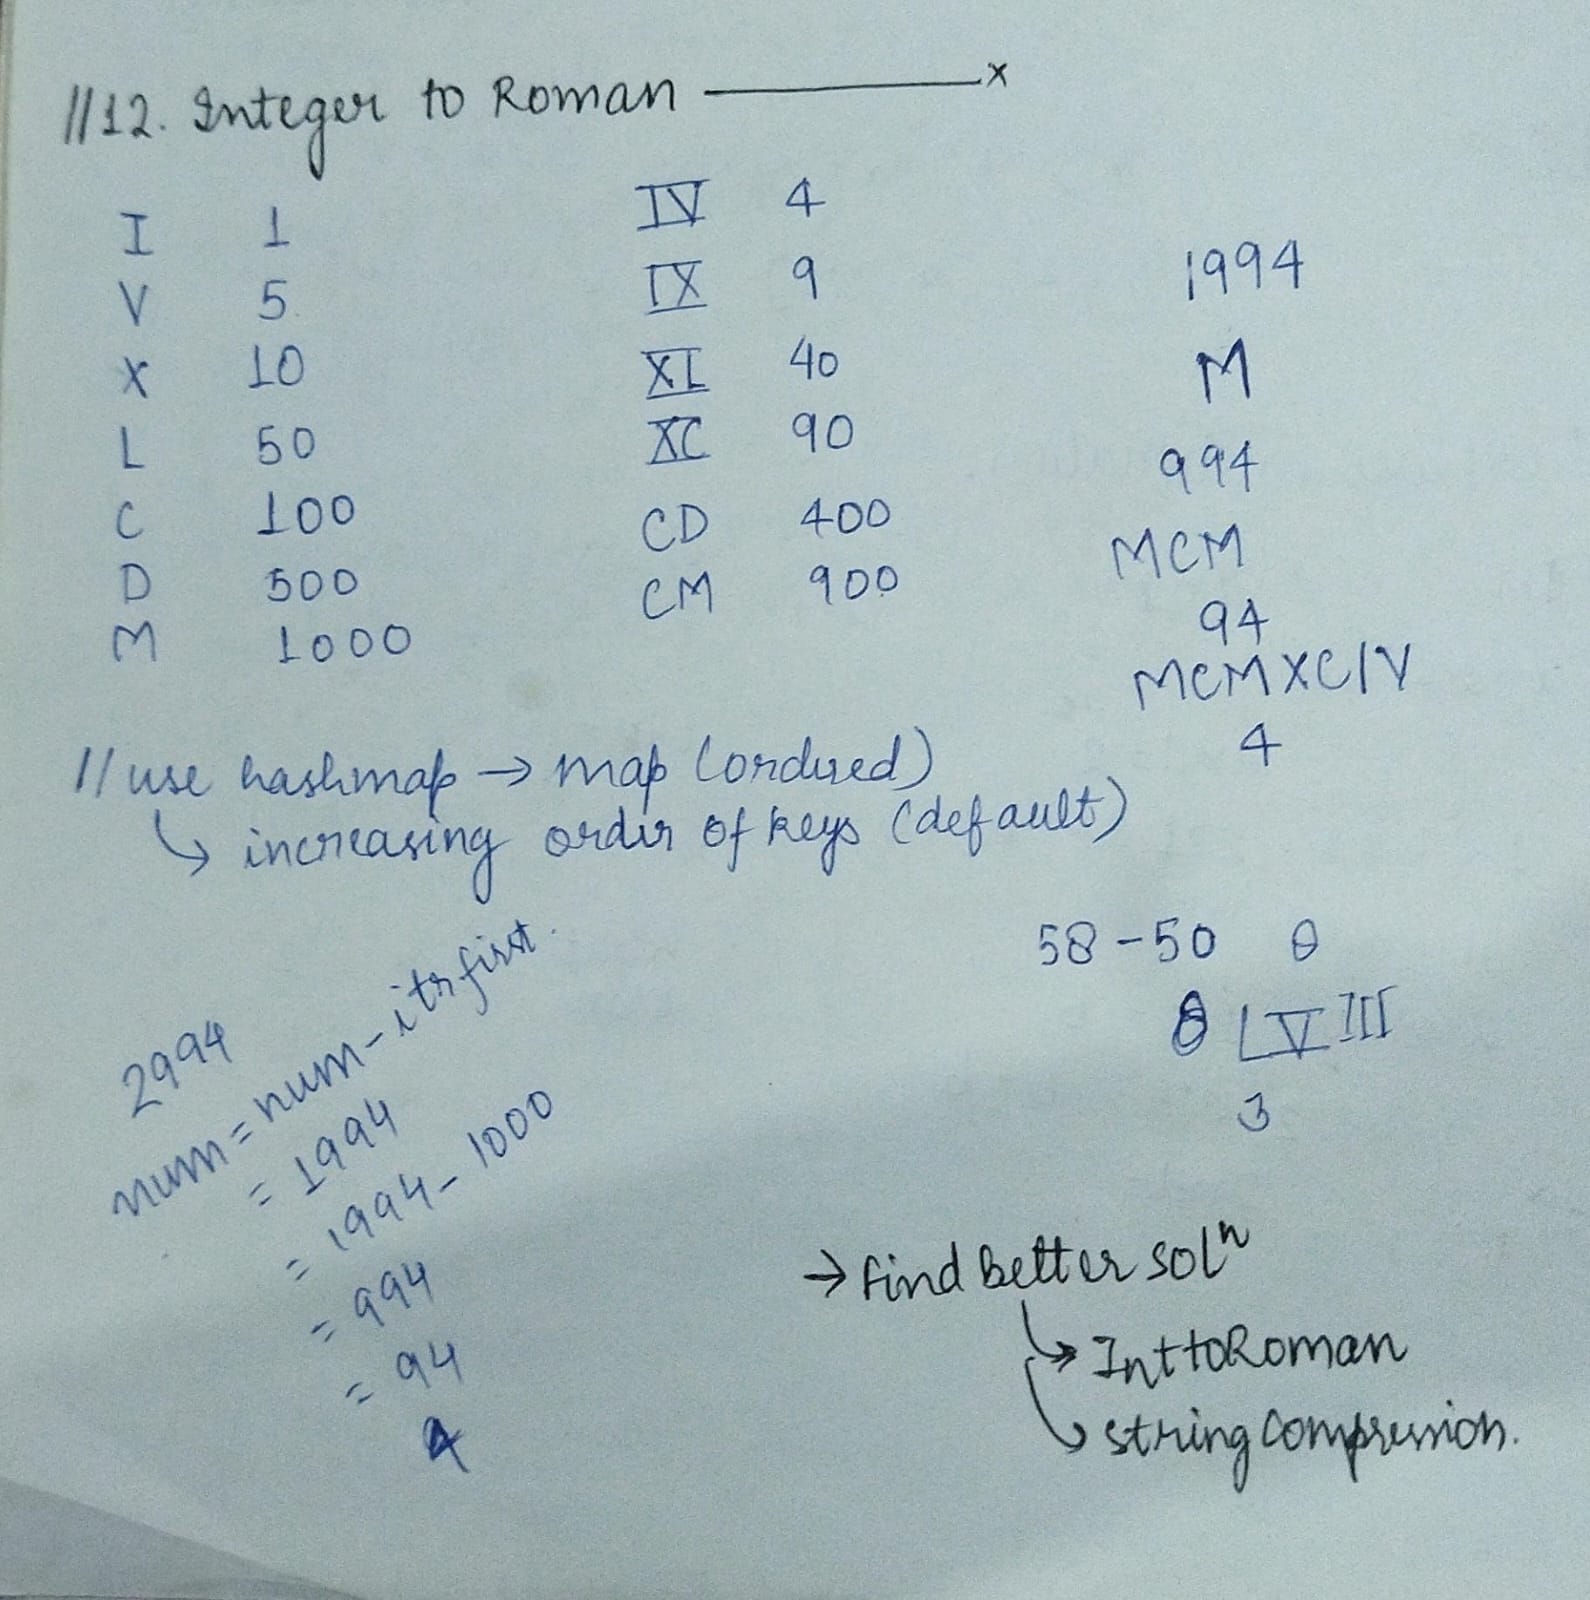 //12. Integer to Roman ———x
I 1
V 5
X 10
L 50
C 100
D 500
M 1000
IV 4
IX 9
XL 40
XC 90
CD 400
CM 900
1994
M
994
MCM
94
MCMXCIV
4
// use hashmap → map (ordered)
↳ increasing order of keys (default)
2994
num = num - itr first.
= 1994
= 1994 - 1000
= 994
= 94
4
58 - 50 8
8 LVIII
3
→ find better solⁿ
↳ Int to Roman
↳ string compression.